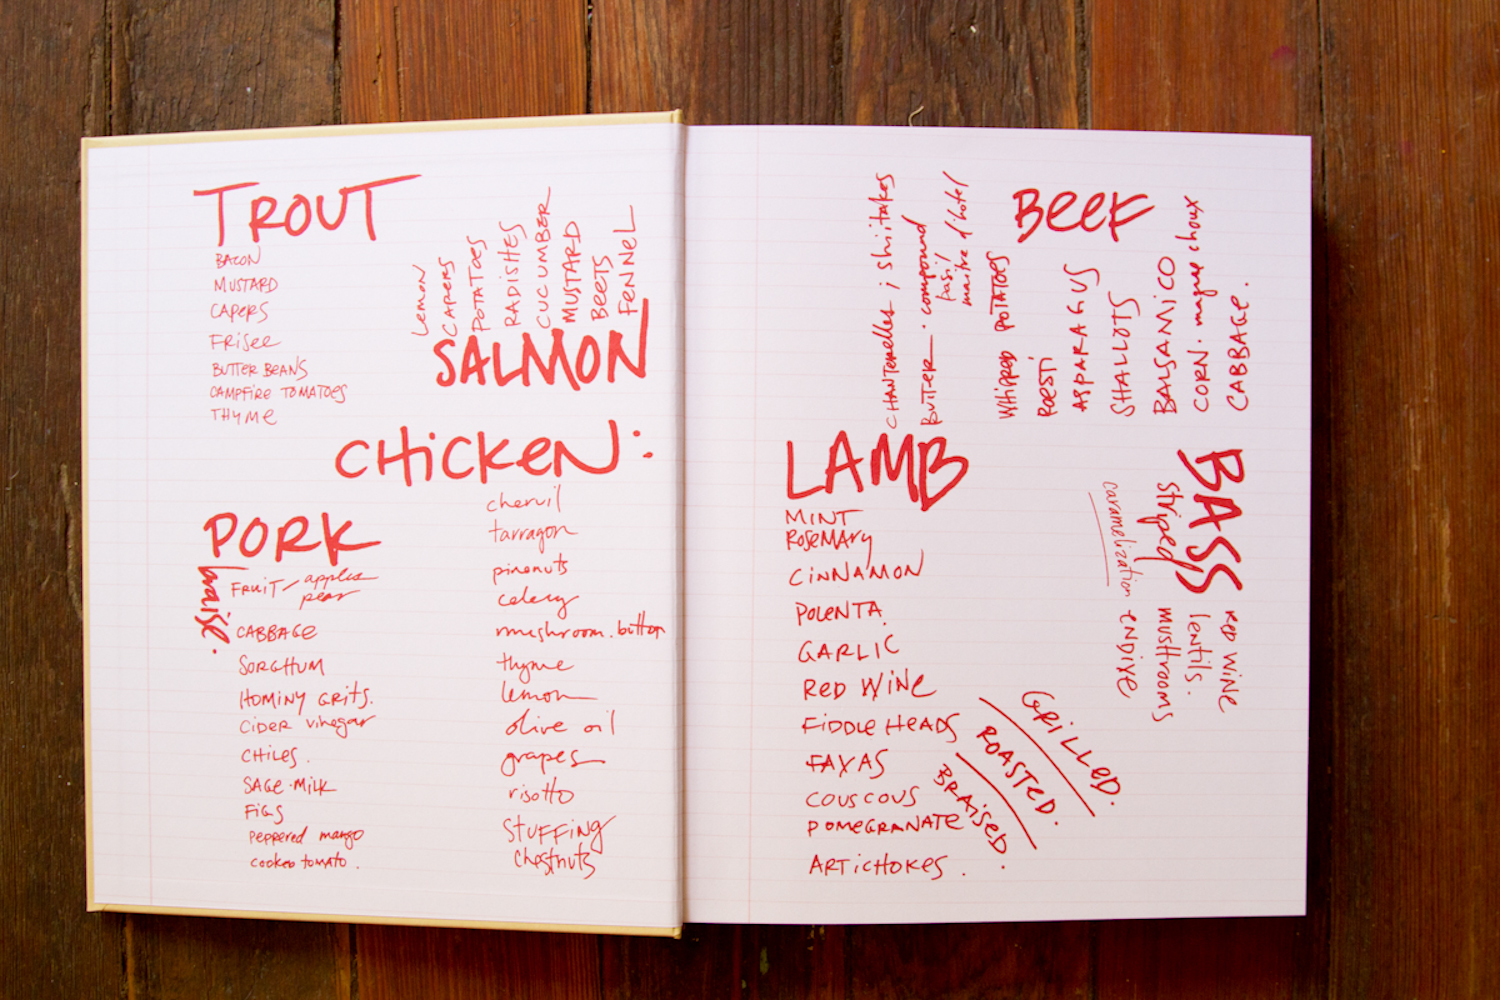 TROUT
BACON
MUSTARD
CAPERS
FRISEE
BUTTER BEANS
CAMPFIRE TOMATOES
THYME
LEMON
CAPERS
POTATOES
RADISHES
CUCUMBER
MUSTARD
BEETS
FENNEL
SALMON
CHICKEN:
chervil
tarragon
pinenuts
celery
mushroom. button
thyme
lemon
olive oil
grapes
risotto
STUFFING
chestnuts
PORK
braise.
FRUIT/ apples
pear
CABBAGE
SORGHUM
HOMINY GRITS.
CIDER vinegar
CHILES.
SAGE · MILK
FIGS
PEPPERED mango
COOKED TOMATO.
BEEF
CHANTERELLES ; shiitakes
BUTTER · compound
basil
maitre d'hotel
WHIPPED POTATOES
ROESTI
ASPARAGUS
SHALLOTS
BALSAMICO
CORN · maque choux
CABBAGE.
LAMB
MINT
ROSEMARY
CINNAMON
POLENTA
GARLIC
RED WINE
FIDDLEHEADS
FAVAS
COUSCOUS
POMEGRANATE
ARTICHOKES.
GRILLED.
ROASTED.
BRAISED.
BASS
striped
caramelization
RED WINE
lentils.
MUSHROOMS
ENDIVE